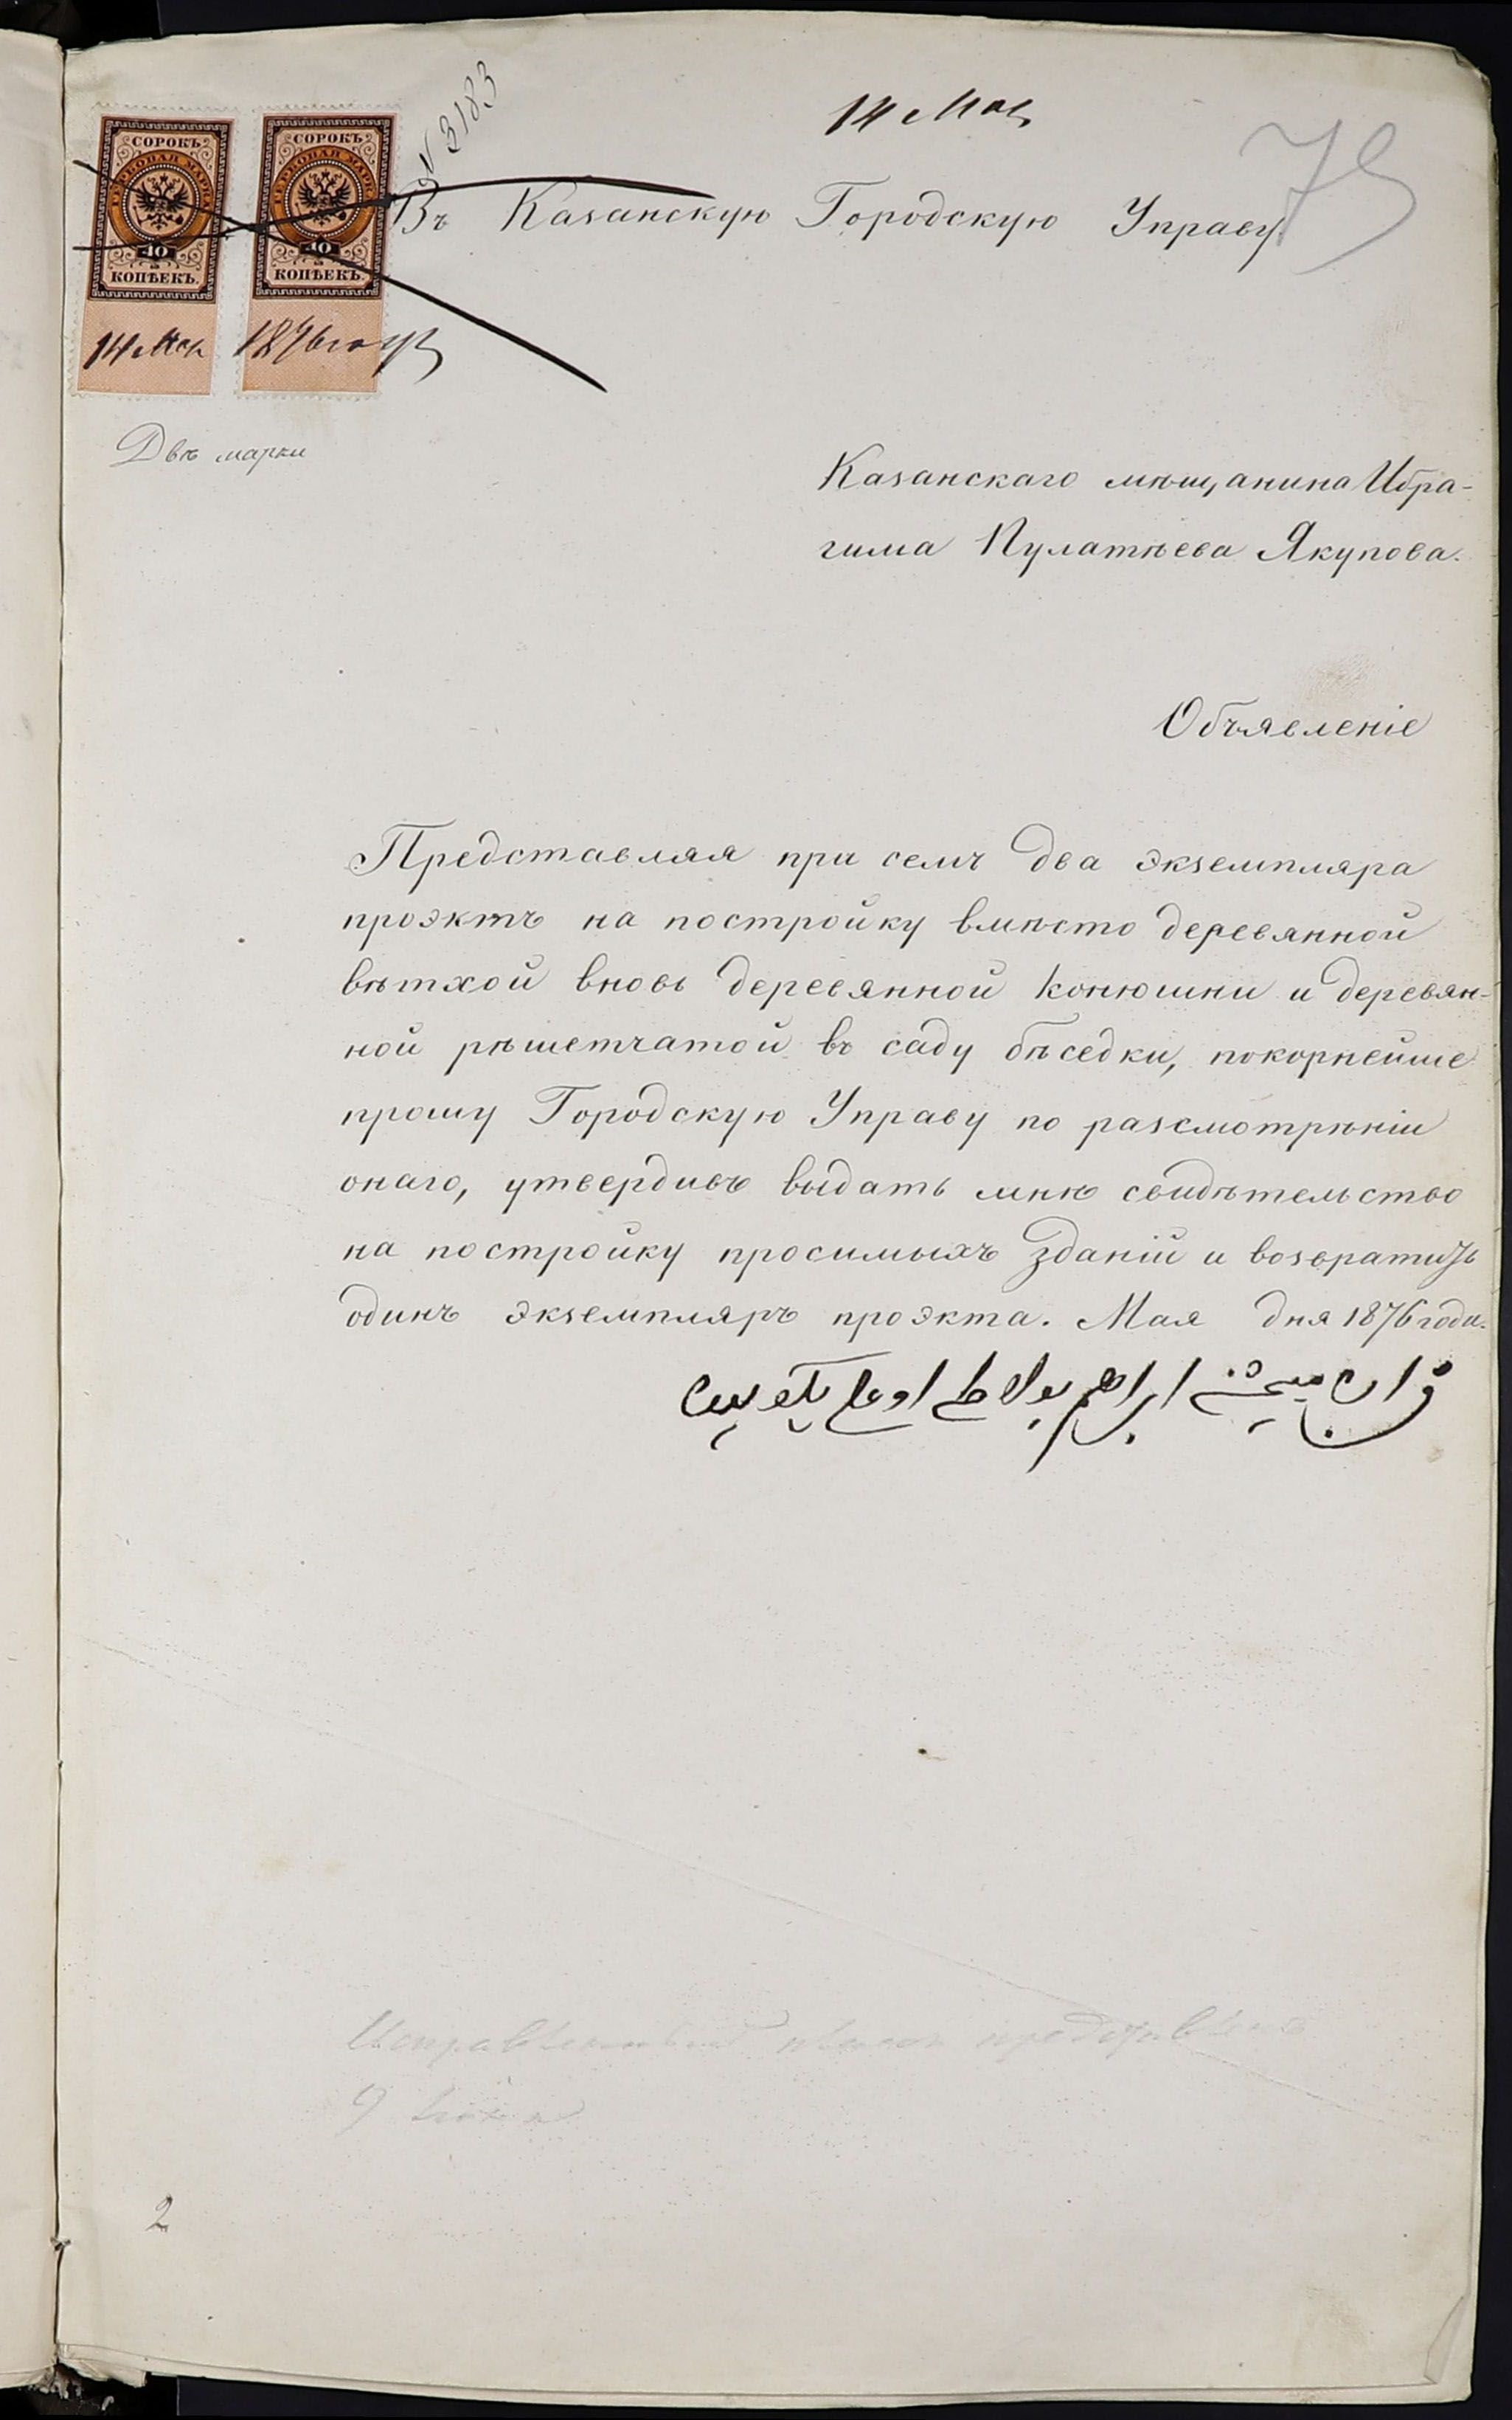 14 Мая
№ 3183
75
СОРОКЪ
ГЕРБОВАЯ МАРКА
40
КОПѢЕКЪ.
СОРОКЪ
ГЕРБОВАЯ МАРКА
40
КОПѢЕКЪ.
14 Мая 1876 года
Двѣ марки
Въ Казанскую Городскую Управу.
Казанскаго мѣщанина Ибра-
гима Пулатѣева Якупова.
Объявленіе
Представляя при семъ два экземпляра
проэктъ на постройку вмѣсто деревянной
вѣтхой вновь деревянной конюшни и деревян-
ной рѣшетчатой въ саду бѣседки, покорнейше
прошу Городскую Управу по разсмотрѣніи
онаго, утвердивъ выдать мнѣ свидѣтельство
на постройку просимыхъ зданій и возвратить
одинъ экземпляръ проэкта. Мая дня 1876 года.
قزان ميشچانى ابراهيم بولاطى اوغلى يعقوبف
Исправленный планъ представленъ
9 Іюня
2